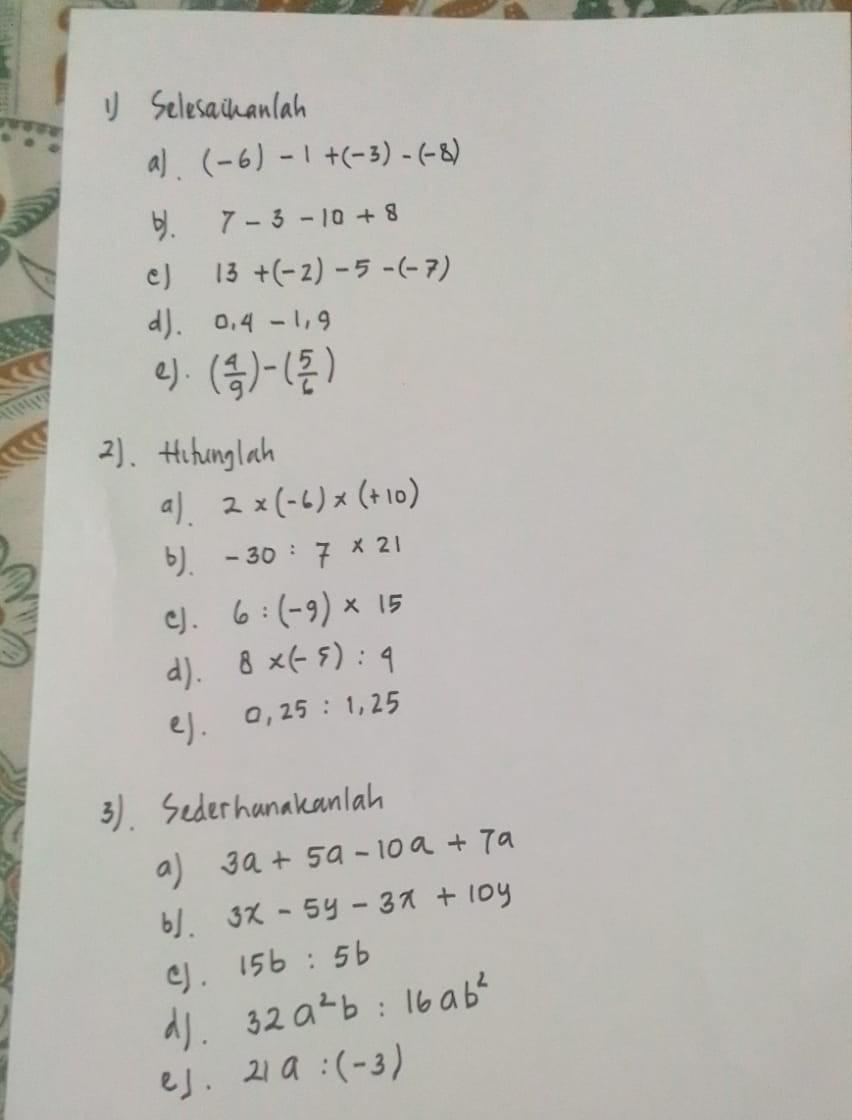 1) Selesaikanlah
a). (-6) - 1 + (-3) - (-8)
b). 7 - 3 - 10 + 8
c) 13 + (-2) - 5 - (-7)
d). 0,4 - 1,9
e). (4/9) - (5/6)
2). Hitunglah
a). 2 × (-6) × (+10)
b). -30 : 7 × 21
c). 6 : (-9) × 15
d). 8 × (-5) : 4
e). 0,25 : 1,25
3). Sederhanakanlah
a) 3a + 5a - 10a + 7a
b). 3x - 5y - 3x + 10y
c). 15b : 5b
d). 32a²b : 16ab²
e). 21a : (-3)